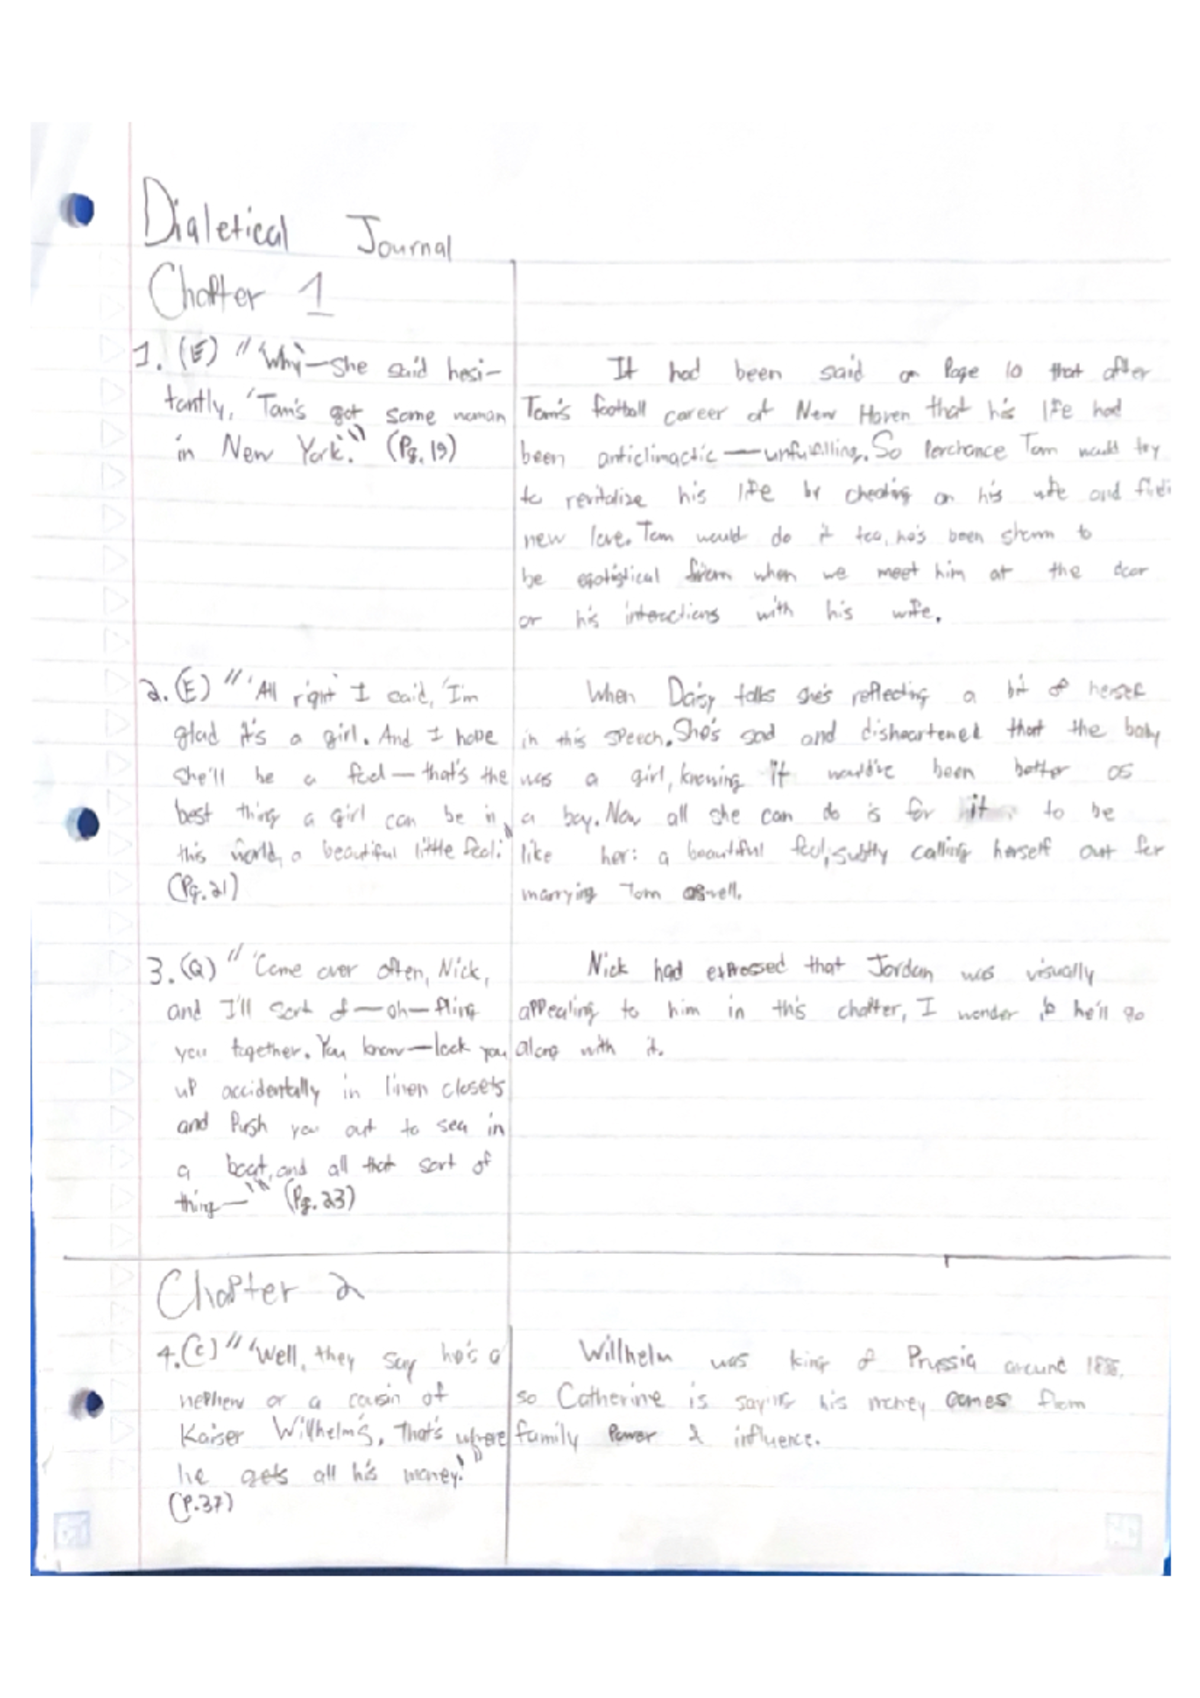 Dialetical Journal
Chapter 1
1. (E) "'Why—she said hesi-
tantly, 'Tom's got some woman
in New York.'" (Pg. 19)
It had been said on Page 10 that after
Tom's football career at New Haven that his life had
been anticlimactic — unfufilling. So Perchance Tom would try
to revitalize his life by cheating on his wife and
new love. Tom would do it too, he's been shown to
be egotistical from when we meet him at the door
or his interactions with his wife.
2. (E) "'All right' I said, 'I'm
glad it's a girl. And I hope
she'll be a fool — that's the
best thing a girl can be in
this world, a beautiful little fool.'"
(Pg. 21)
When Daisy talks she's reflecting a bit of herself
in this speech. She's sad and disheartened that the baby
was a girl, knowing it would've been better as
a boy. Now all she can do is for it to be
like her: a beautiful fool, subtly calling herself out for
marrying Tom aswell.
3. (Q) "'Come over often, Nick,
and I'll sort of — oh — fling
you together. You know — lock you
up accidentally in linen closets
and Push you out to sea in
a boat, and all that sort of
thing—'" (Pg. 23)
Nick had expressed that Jordan was visually
appealing to him in this chapter, I wonder if he'll go
along with it.
Chapter 2
4. (C) "'Well, they say he's a
nephew or a cousin of
Kaiser Wilhelm's, That's where
he gets all his money.'"
(P. 37)
Willhelm was king of Prussia around
so Catherine is saying his money comes from
family Power & influence.